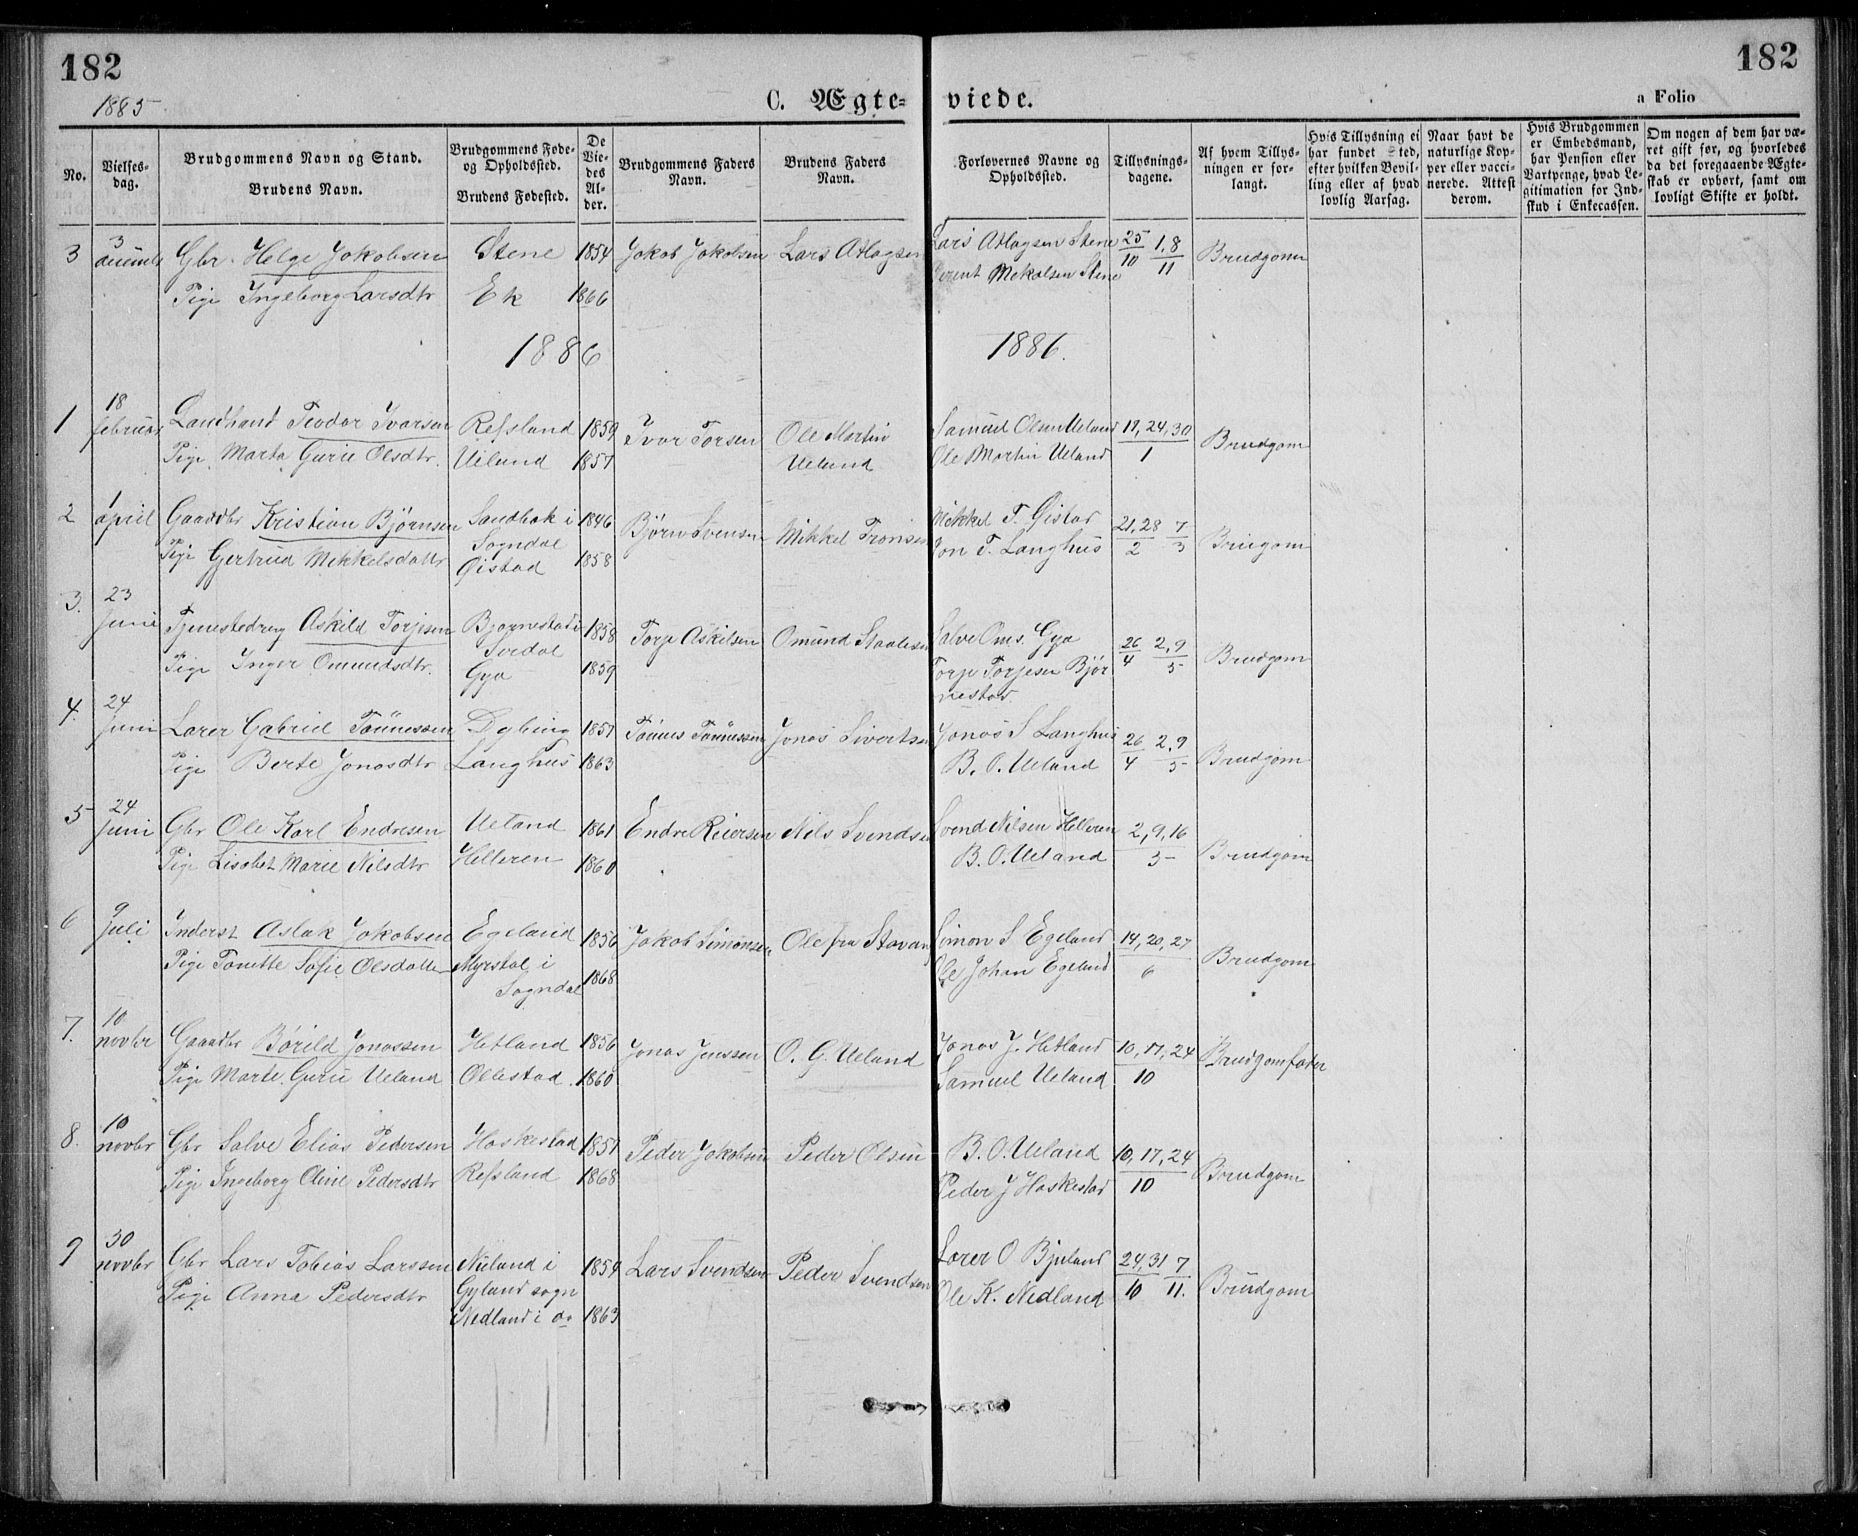 182
182
1885
C. Ægte-
viede.
a Folio
No.
Vielses-
dag.
Brudgommens Navn og Stand.
Brudens Navn.
Brudgommens Føde-
og Opholdssted.
Brudens Fødested.
De
Vie-
des
Al-
der.
Brudgommens Faders
Navn.
Brudens Faders
Navn.
Forlovernes Navne og
Opholdssted.
Tillysnings-
dagene.
Af hvem Tillys-
ningen er for-
langt.
Hvis Tillysning ei
har fundet Sted,
efter hvilken Bevil-
ling eller af hvad
lovlig Aarsag.
Naar havt de
naturlige Kop-
per eller vacci-
nerede. Attest
derom.
Hvis Brudgommen
er Embedsmand,
har Pension eller
Vartpenge, hvad Le-
gitimation for Ind-
skud i Enkecassen.
Om nogen af dem har væ-
ret gift før, og hvorledes
da det foregaaende Ægte-
skab er ophørt, samt om
lovligt Skifte er holdt.
3 3 Gbr. Helge Jakobsen Stene 1854 Jakob Jakobsen Lars Atlagsen Lars Atlagsen Stene 25/10 1,8/11 Brudgom
Pige Ingeborg Larsdtr Ek 1866 Berent Mekalsen Stene
1886 1886.
1 18 februar Landhand Teodor Ivarsen Refsland 1859 Ivar Torsen Ole Martin Samuel Olsen Ueland 17, 24, 30/1 Brudgom
Pige Marta Gurie Olsdtr. Ueland 1857 Ueland Ole Martin Ueland
2 1 april Gaardbr Kristian Bjørnsen Sandbæk i 1846 Bjørn Svensen Mikkel Tronsen Mikkel T. Øistad 21, 28/2 7/3 Brudgom
Sogndal
Pige Gjertrud Mikkelsdattr Øistad 1858 Jon T. Langhus
3. 23 Juni Tjenestedreng Askild Torjesen Bjørnestad i 1858 Torje Askilsen Omund Staalesen Salve Oms. Gya 26/4 2,9/5 Brudgom
Sirdal
Pige Inger Omundsdtr. Gya 1859 Torje Torjesen Bjør
nestad.
4. 24 Juni Lærer Gabriel Tønnessen Dybing 1857 Tønnes Tønnessen Jonas Sivertsen Jonas S Langhus 26/4 2,9/5 Brudgom
Pige Berte Jonasdtr Langhus 1863 B. O. Ueland
5 24 Juni Gbr Ole Karl Endresen Ueland 1861 Endre Reiersen Nils Svendsen Svend Nilsen Helleren 2, 9, 16/5 Brudgom
Pige Lisabet Marie Nilsdtr Helleren 1860 B. O. Ueland
6 9 Juli Inderst Aslak Jakobsen Egeland 1856 Jakob Simonsen Ole fra Stavang Simon S Egeland 14, 20, 27/6 Brudgom
Pige Tonette Sofie Olsdatter Myrstøl i 1868 Ole Johan Egeland
Sogndal
7. 10 novbr Gaardbr Børild Jonassen Hetland 1856 Jonas Jenssen O. G. Ueland Jonas J. Hetland 10, 17, 24/10 Brudgomfader
Pige Marte Gurie Ueland Ollestad 1860 Samuel Ueland
8. 10 novbr Gbr Salve Elias Pedersen Haskestad 1857 Peder Jakobsen Peder Olsen B. O. Ueland 10, 17, 24/10 Brudgom
Pige Ingeborg Oline Pedersdtr Refsland 1868 Peder J Haskestad
9 30 novbr Gbr Lars Tobias Larssen Nuland i 1854 Lars Svendsen Peder Svendsen Lærer O Bjueland 24, 31/10 7/11. Brudgom
Pige Anna Pedersdtr Gyland sogn
Nedland i do 1863 Ole K. Nedland